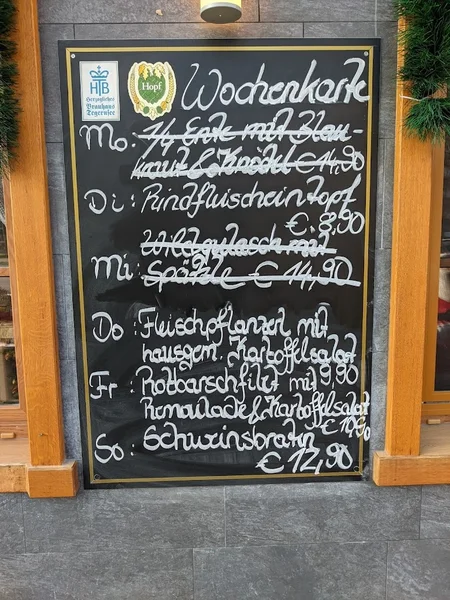 HTB
Herzogliches
Brauhaus
Tegernsee
Hopf
Wochenkarte
Mo: 1/4 Ente mit Blau-
kraut & Knödel € 14,90
Di: Rindfleischeintopf
€ 8,90
Wildgulasch mit
Mi: Spätzle € 14,90
Do: Fleischpflanzerl mit
hausgem. Kartoffelsalat
9,90
Fr: Rotbarschfilet mit
Remoulade & Kartoffelsalat
€ 10,90
So: Schweinsbraten
€ 12,90